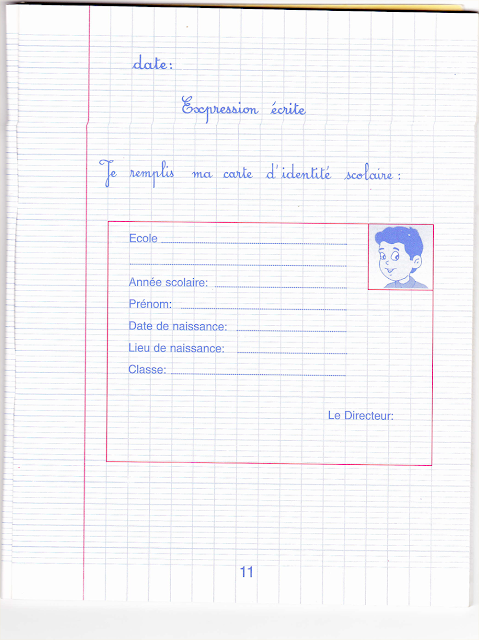 date:
Expression écrite
Je remplis ma carte d'identité scolaire :
Ecole
Année scolaire:
Prénom:
Date de naissance:
Lieu de naissance:
Classe:
Le Directeur:
11